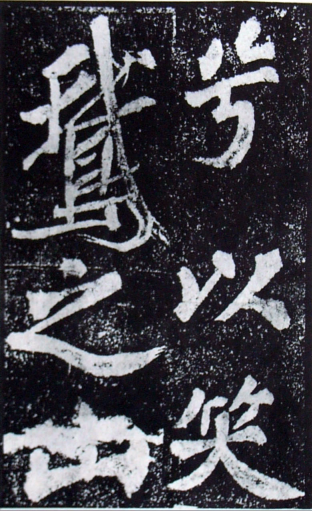 兮以笑
鵞之山